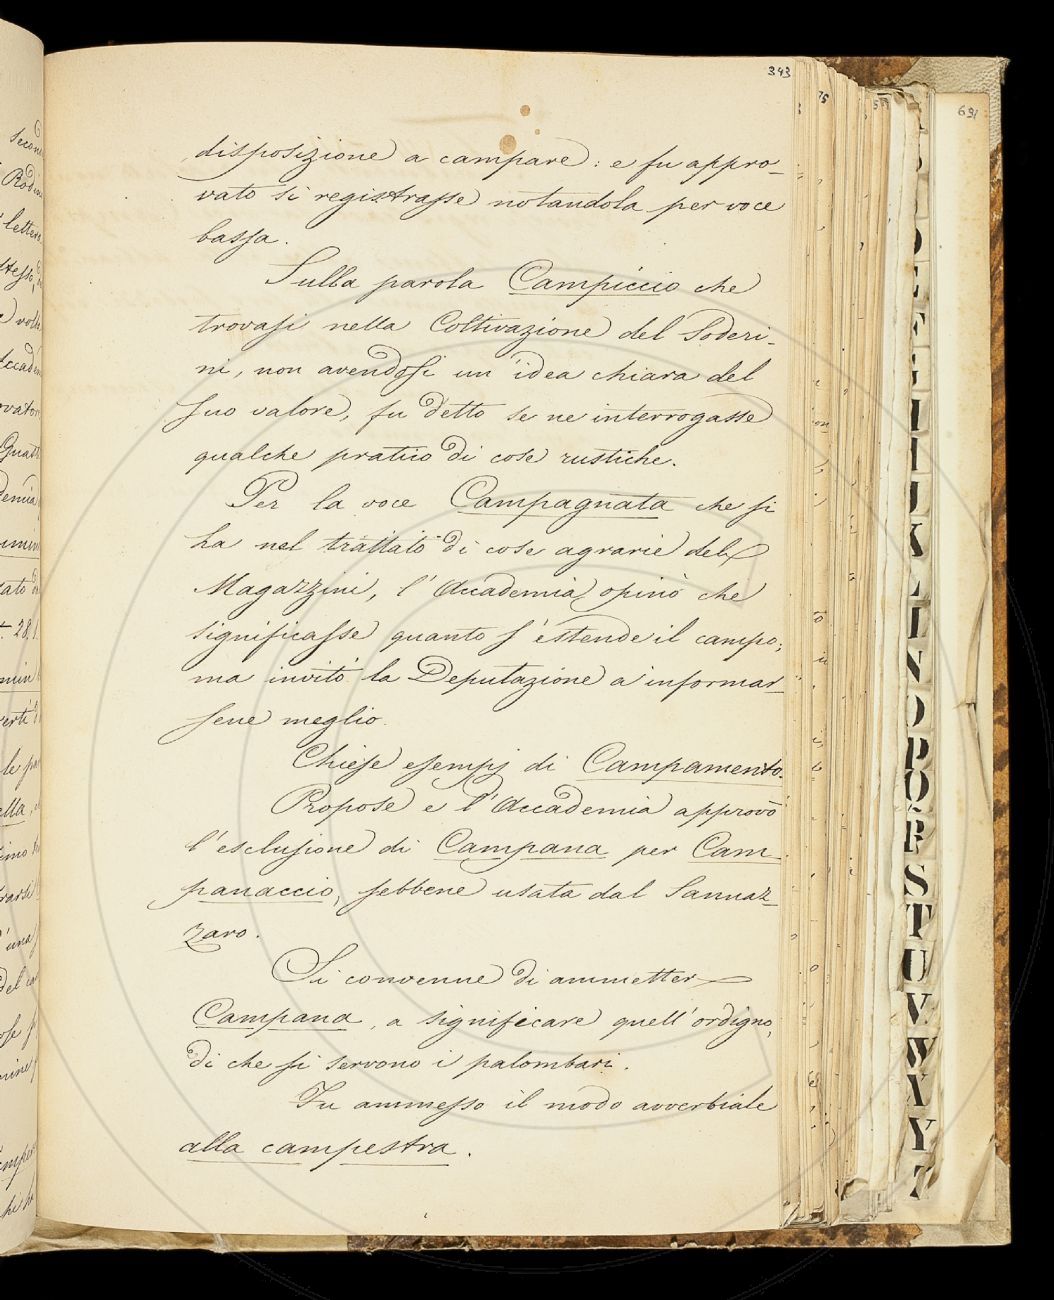 343
disposizione a campare: e fu appro-
vato si registrasse notandola per voce
bassa.
Sulla parola Campiccio che
trovasi nella Coltivazione del Soderi-
ni, non avendosi un'idea chiara del
suo valore, fu detto se ne interrogasse
qualche pratico di cose rustiche.
Per la voce Campagnata che si
ha nel trattato di cose agrarie del
Magazzini, l'Accademia opinò che
significasse quanto s'estende il campo;
ma invitò la Deputazione a informar-
sene meglio.
Chiese esempj di Campamento.
Propose e l'Accademia approvò
l'esclusione di Campana per Cam-
panaccio, sebbene usata dal Sannaz-
zaro.
Si convenne di ammetter
Campana, a significare quell'ordigno,
di che si servono i palombari.
Fu ammesso il modo avverbiale
alla campestra.